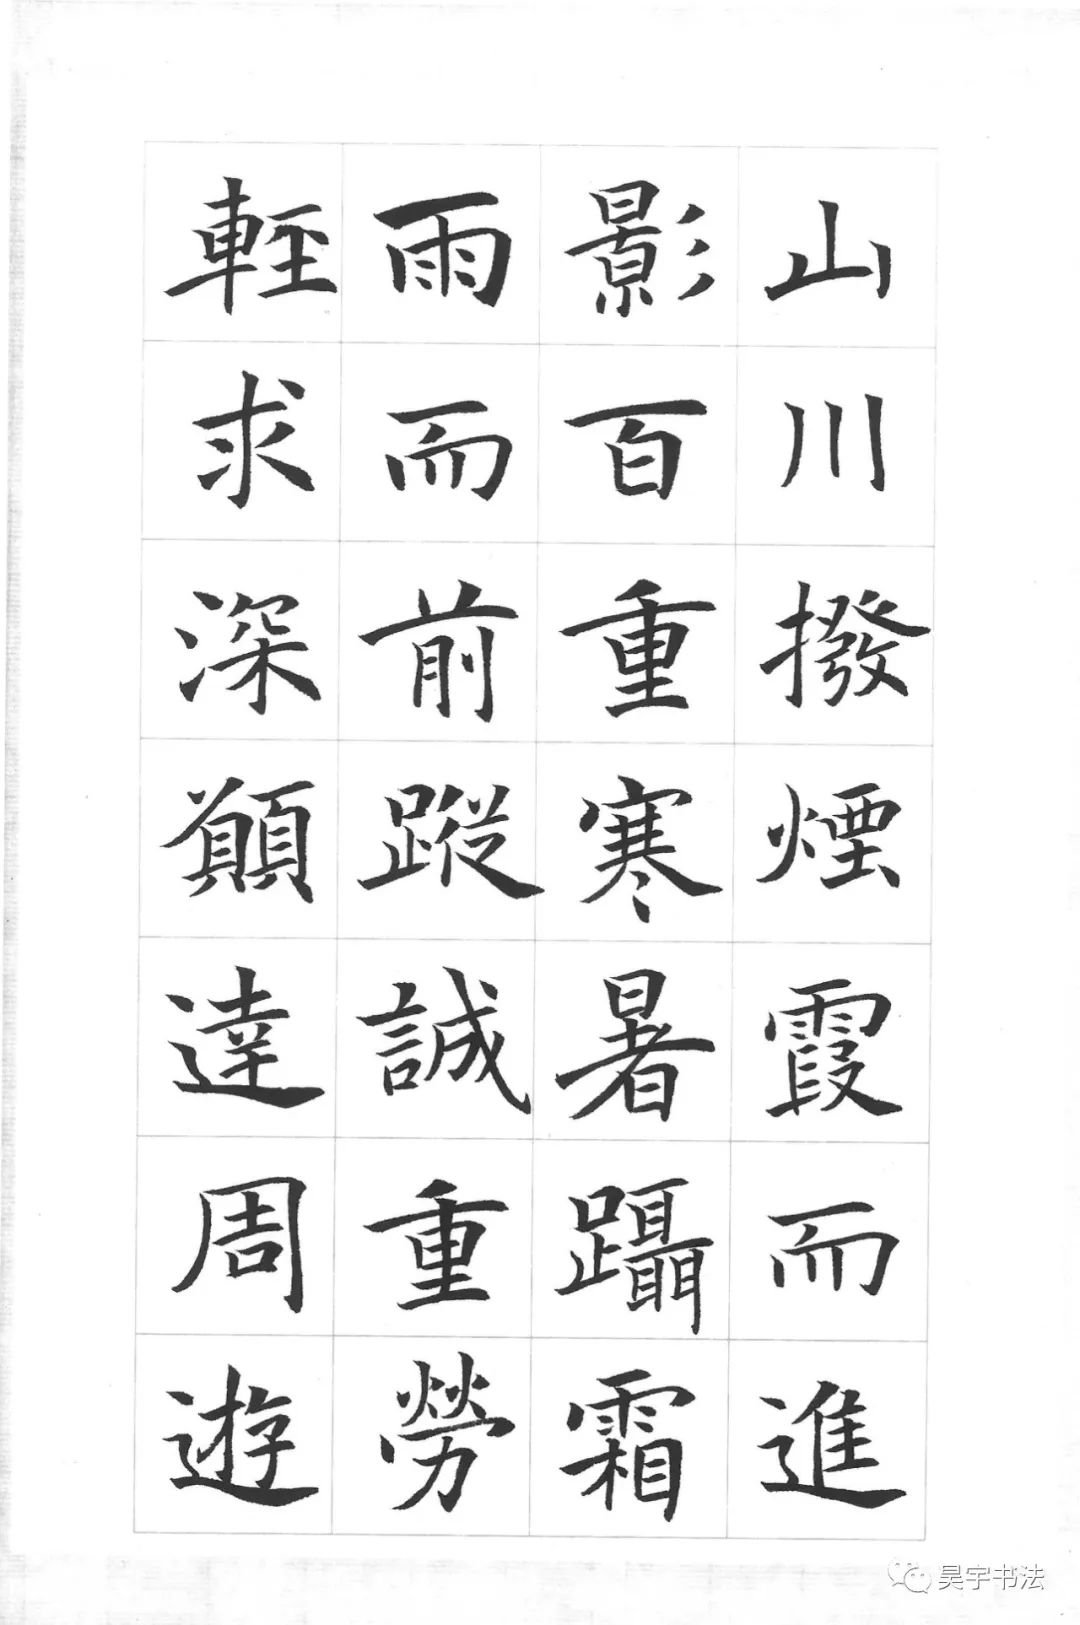 山川撥煙霞而進
影百重寒暑躡霜
雨而前蹤誠重勞
輕求深願達周遊
昊宇书法